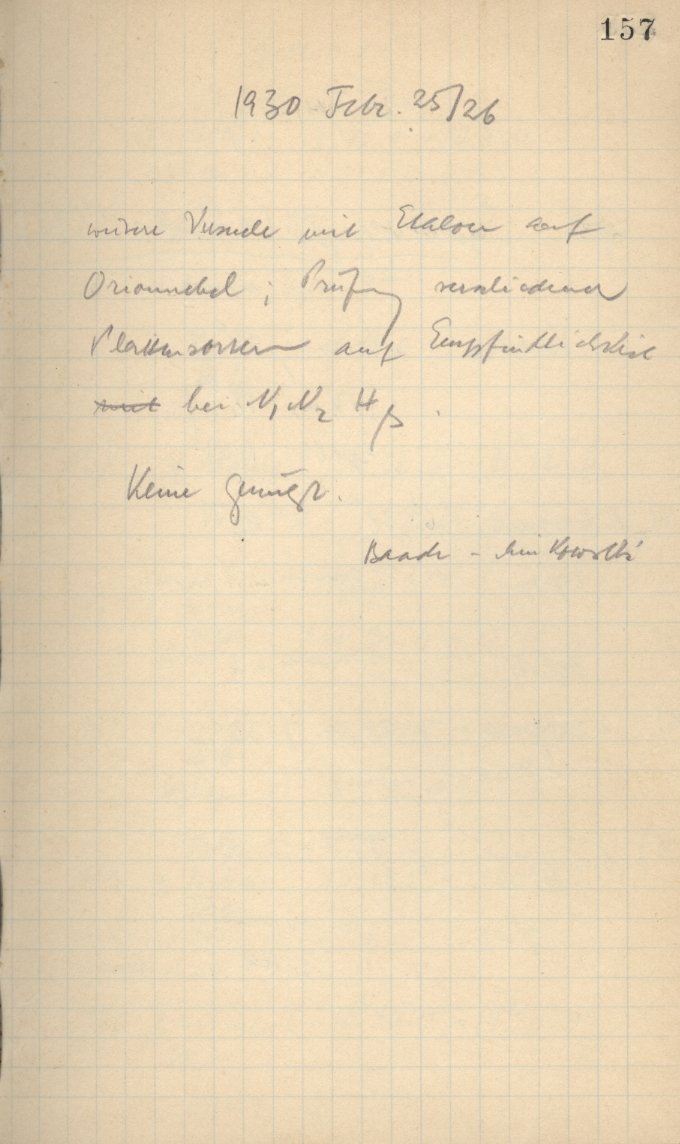 157
1930 Febr. 25/26
weitere Versuche mit Etalon auf
Orionnebel ; Prüfung verschiedener
Plattensorten auf Empfindlichkeit
mit bei N₁ N₂ Hβ .
Keine genügt.
Baade - Minkowski